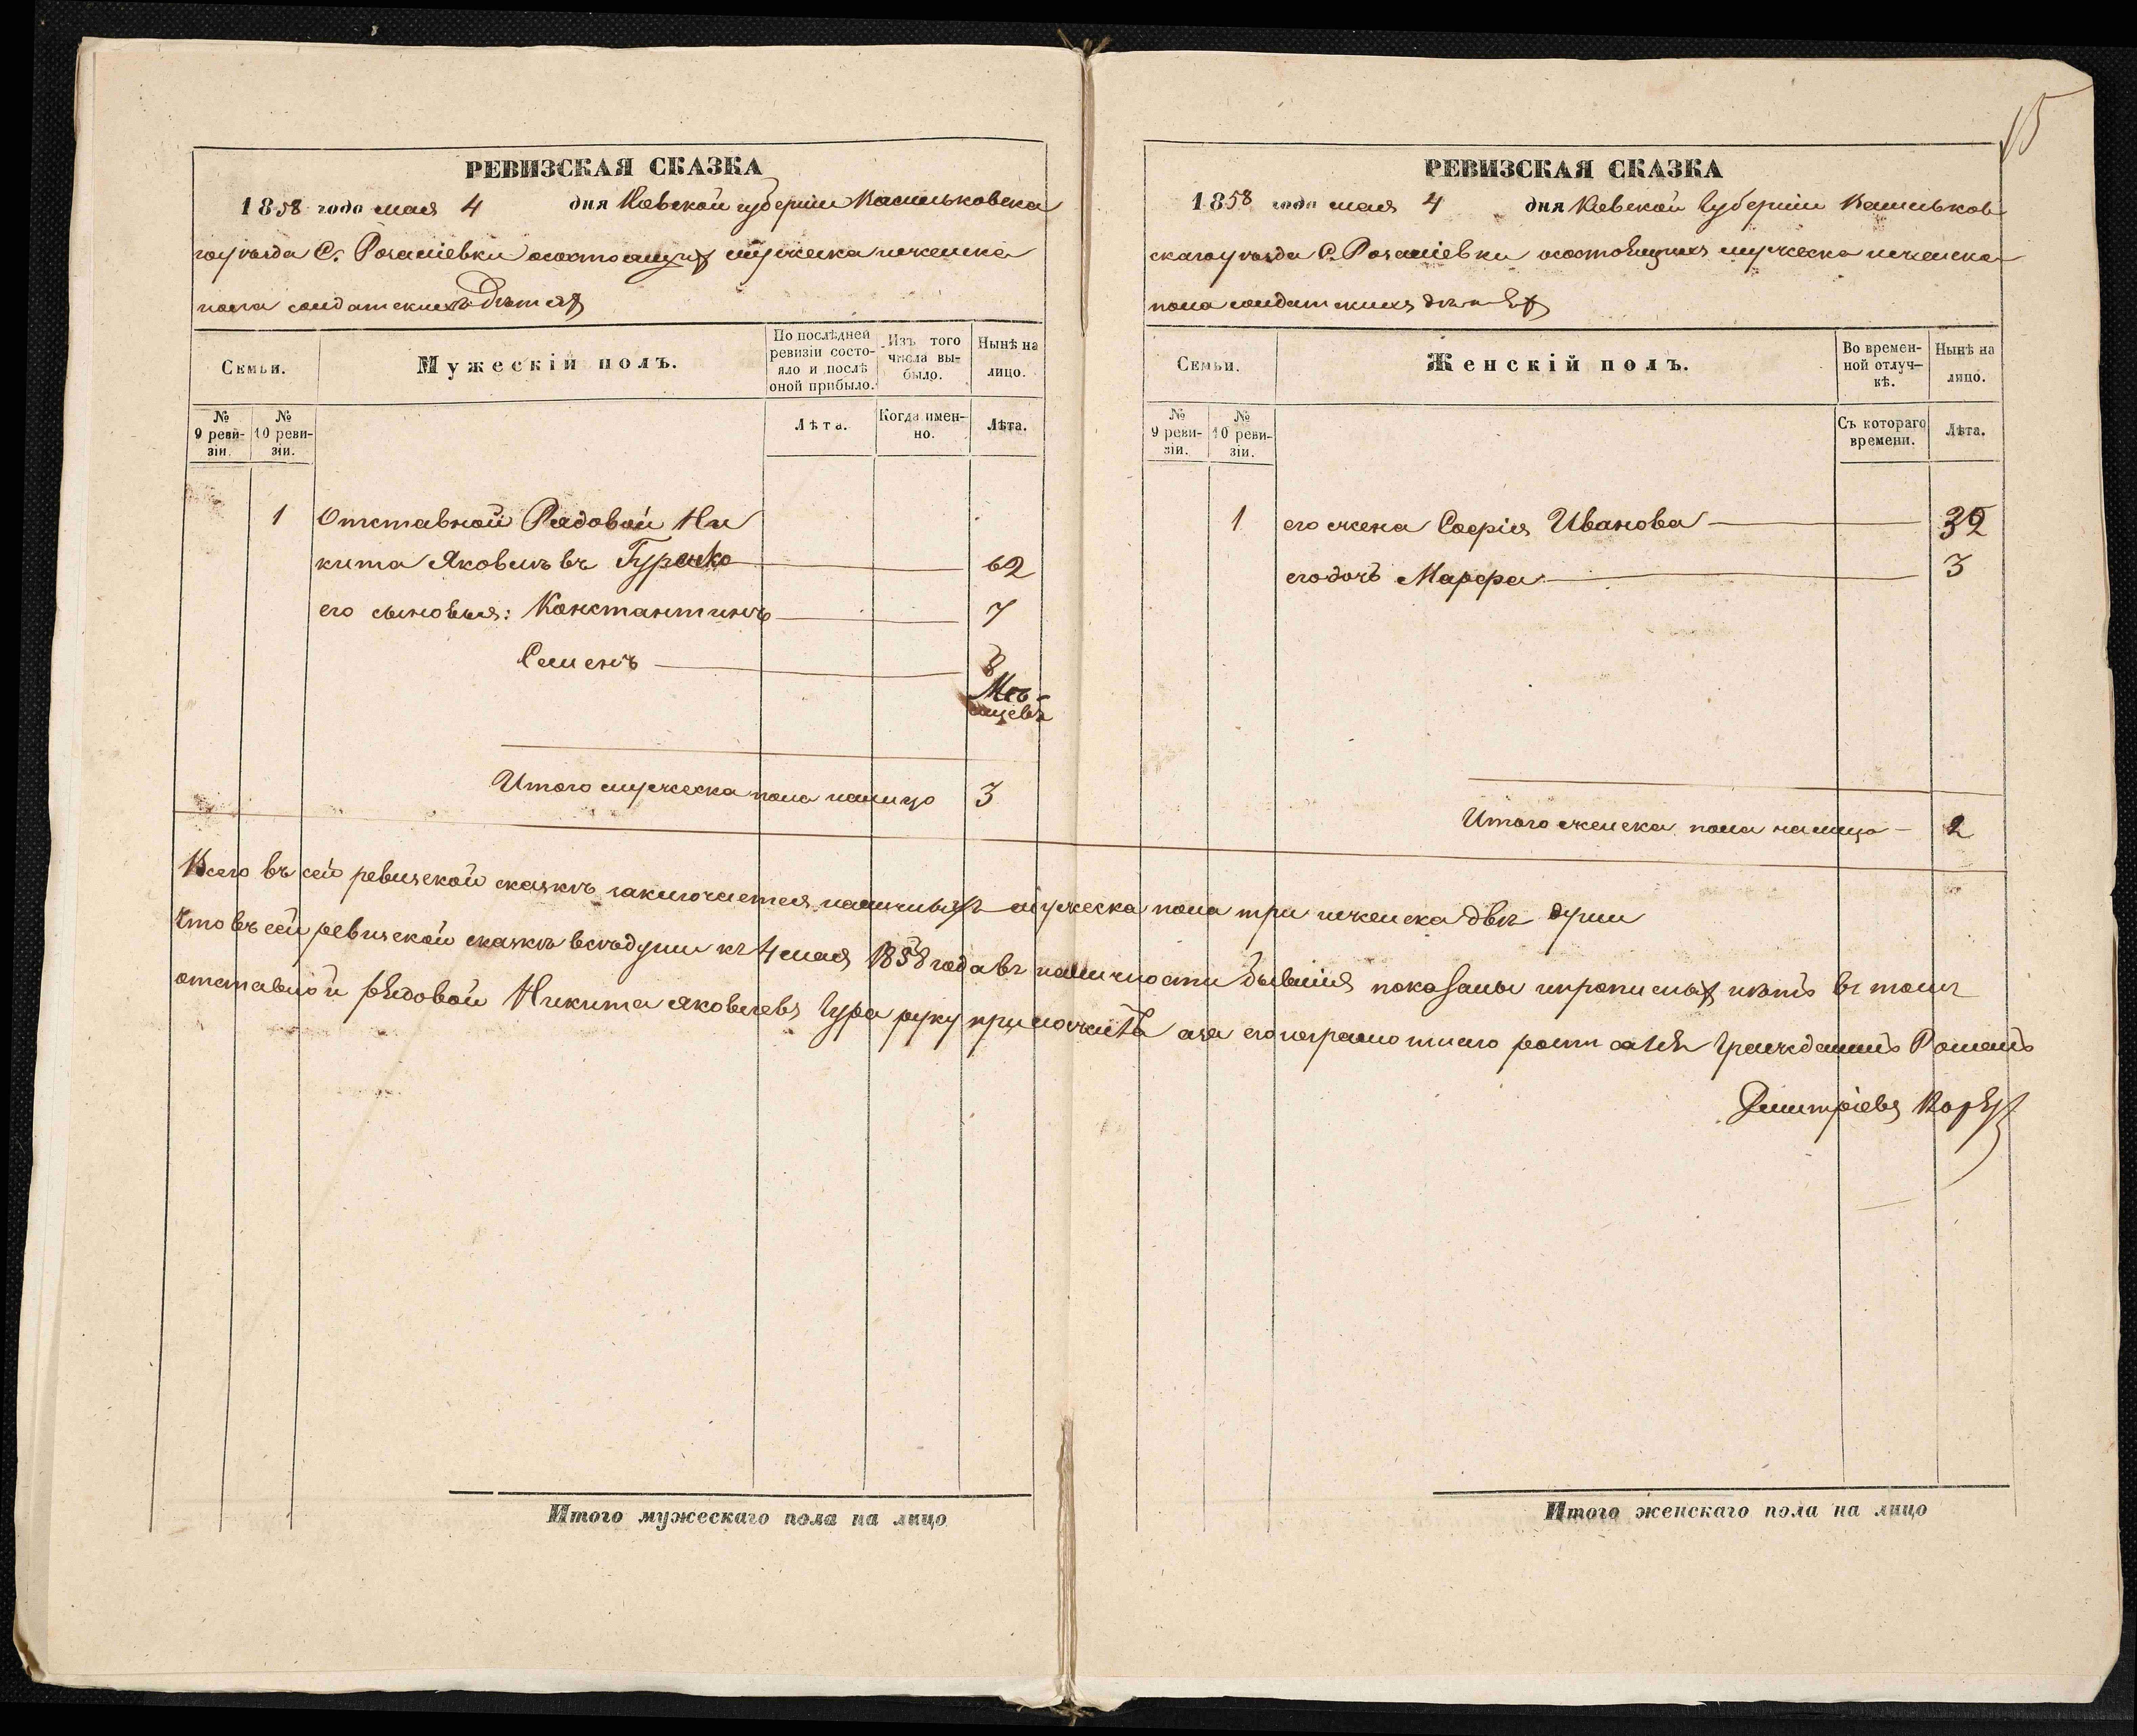 15
РЕВИЗСКАЯ СКАЗКА
1858 года мая 4 дня Кіевской губерніи Васильковска
го уѣзда С. Розаліевки о состоящихъ мужеска и женска
пола солдатскихъ дѣтяхъ
Семьи.
Мужескій полъ.
По послѣдней ревизіи состояло и послѣ оной прибыло.
Изъ того числа выбыло.
Нынѣ на лицо.
№ 9 ревизіи.
№ 10 ревизіи.
Лѣта.
Когда именно.
Лѣта.
1 Отставной Рядовой Ни
кита Яковлевъ Гуренко 62
его сыновья: Константинъ 7
Семенъ 3
Мѣ-
сяцевъ
Итого мужеска пола налицо 3
РЕВИЗСКАЯ СКАЗКА
1858 года мая 4 дня Кіевской Губерніи Васильков
скаго уѣзда С. Розаліевки о состоящихъ мужеска и женска
пола солдатскихъ дѣтяхъ
Семьи.
Женскій полъ.
Во временной отлучкѣ.
Нынѣ на лицо.
№ 9 ревизіи.
№ 10 ревизіи.
Съ котораго времени.
Лѣта.
1 его жена Софія Иванова 32
его дочь Марфа 3
Итого женска пола налицо 2
Всего въ сей ревизской сказкѣ заключается наличныхъ мужеска пола три и женска двѣ души
Что въ сей ревизской сказкѣ всѣ души къ 4 мая 1858 года въ наличности бывшія показаны и прописныхъ нѣтъ въ томъ
отставной рядовой Никита Яковлевъ Гура руку приложилъ а за его неграмотнаго гражданинъ Романъ
Дмитріевъ
Итого мужескаго пола на лицо
Итого женскаго пола на лицо